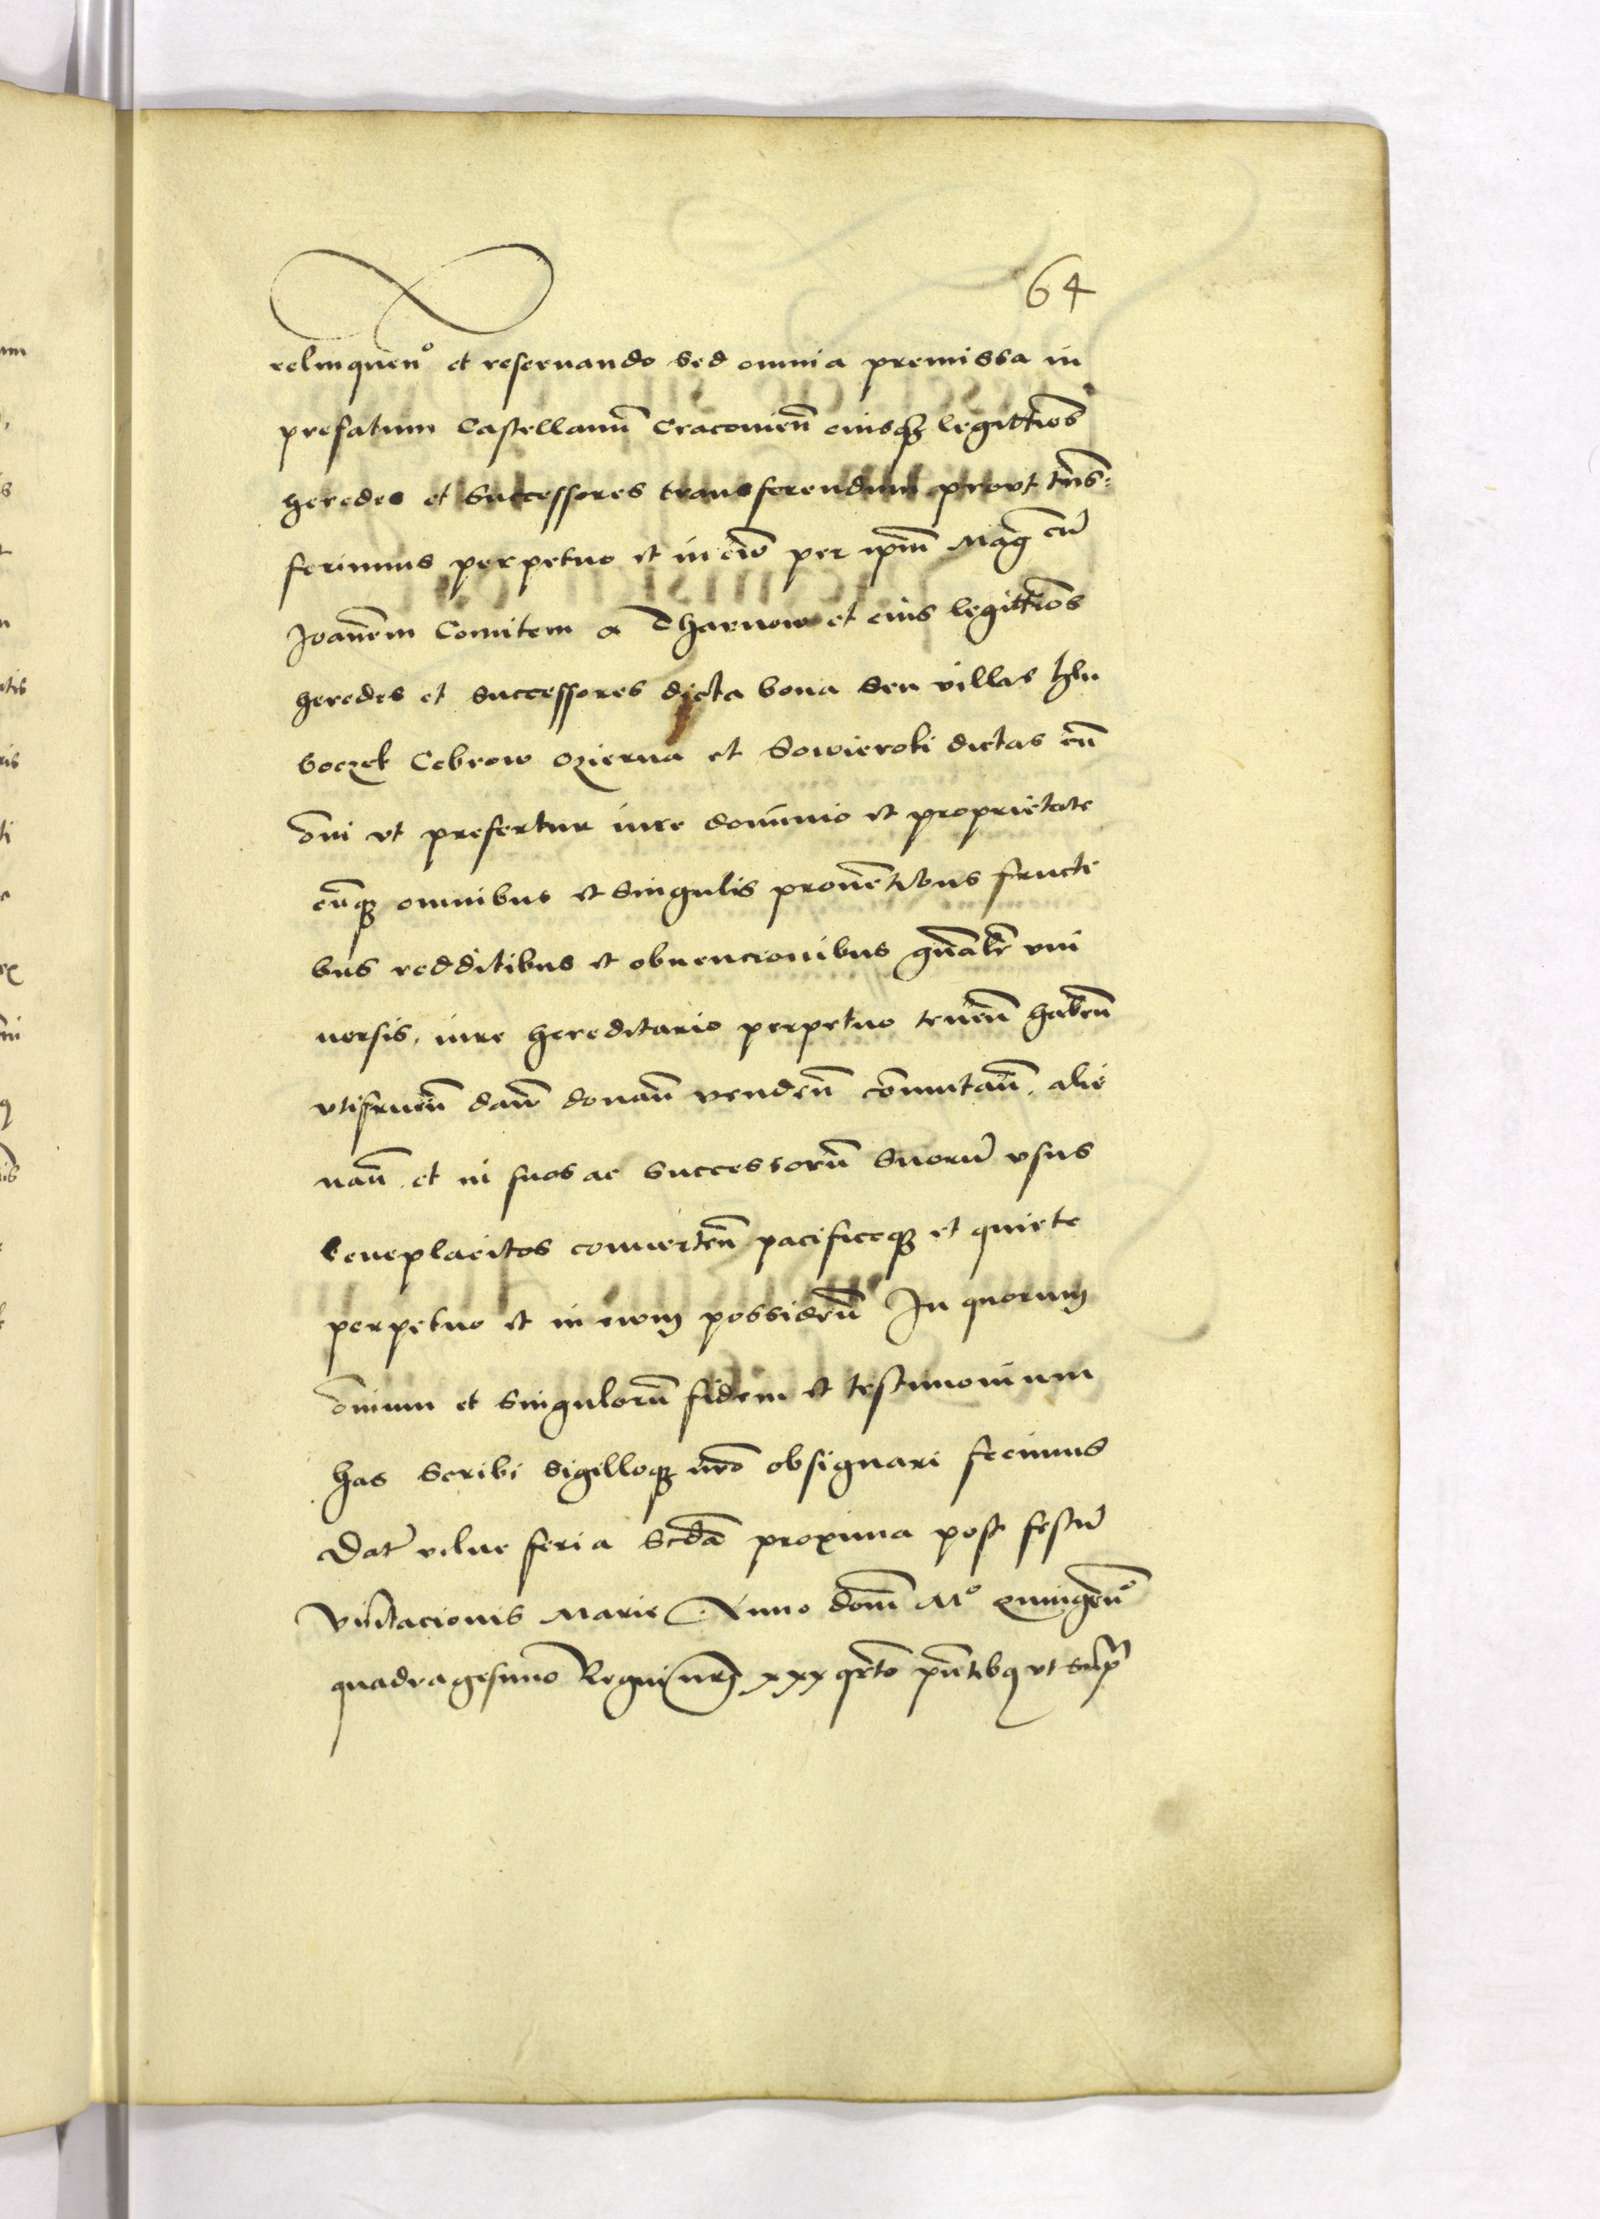 64
relinquen° et reseruando sed omnia premissa in
prefatum Castellanū Cracouien̄ eiusqȝ legittīos
heredes et Successores transferendum prout trn̄s=
ferimus perpetuo et in eūo per ipm̄ Mag cū
Joan̄em Comitem a Tharnow et eius legittīos
heredes et successores dicta bona seu villas Hlu
boczek Cebrow Ozierna et Sowieroki dictas cū
om̄i vt prefertur iure dominio et proprietate
cūqȝ omnibus et singulis prouētibus fructi
bus redditibus et obuencionibus gn̄alr̄ vni
uersis, iure hereditario perpetuo tenen̄ haben̄
vtifruen̄ dan̄ donan̄ venden̄ cōmutan̄, alie
nan̄ et in suos ac successorū suorū vsus
beneplacitos conuerten̄ pacificeqȝ et quiete
perpetuo et in euom possiden̄ In quorum
om̄ium et singulorū fidem et testimonium
has scribi sigilloqȝ nr̄o obsignari fecimus
Dat̄ vilne feria Scd̄a proxima post festū
Visitacionis Marie Anno dom̄ M° quingen°
quadragesimo Regni nr̄i xxx qr̄to pn̄tibqȝ vt supr̄